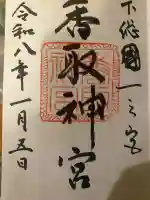 下総國一之宮
香取神宮
令和八年一月五日